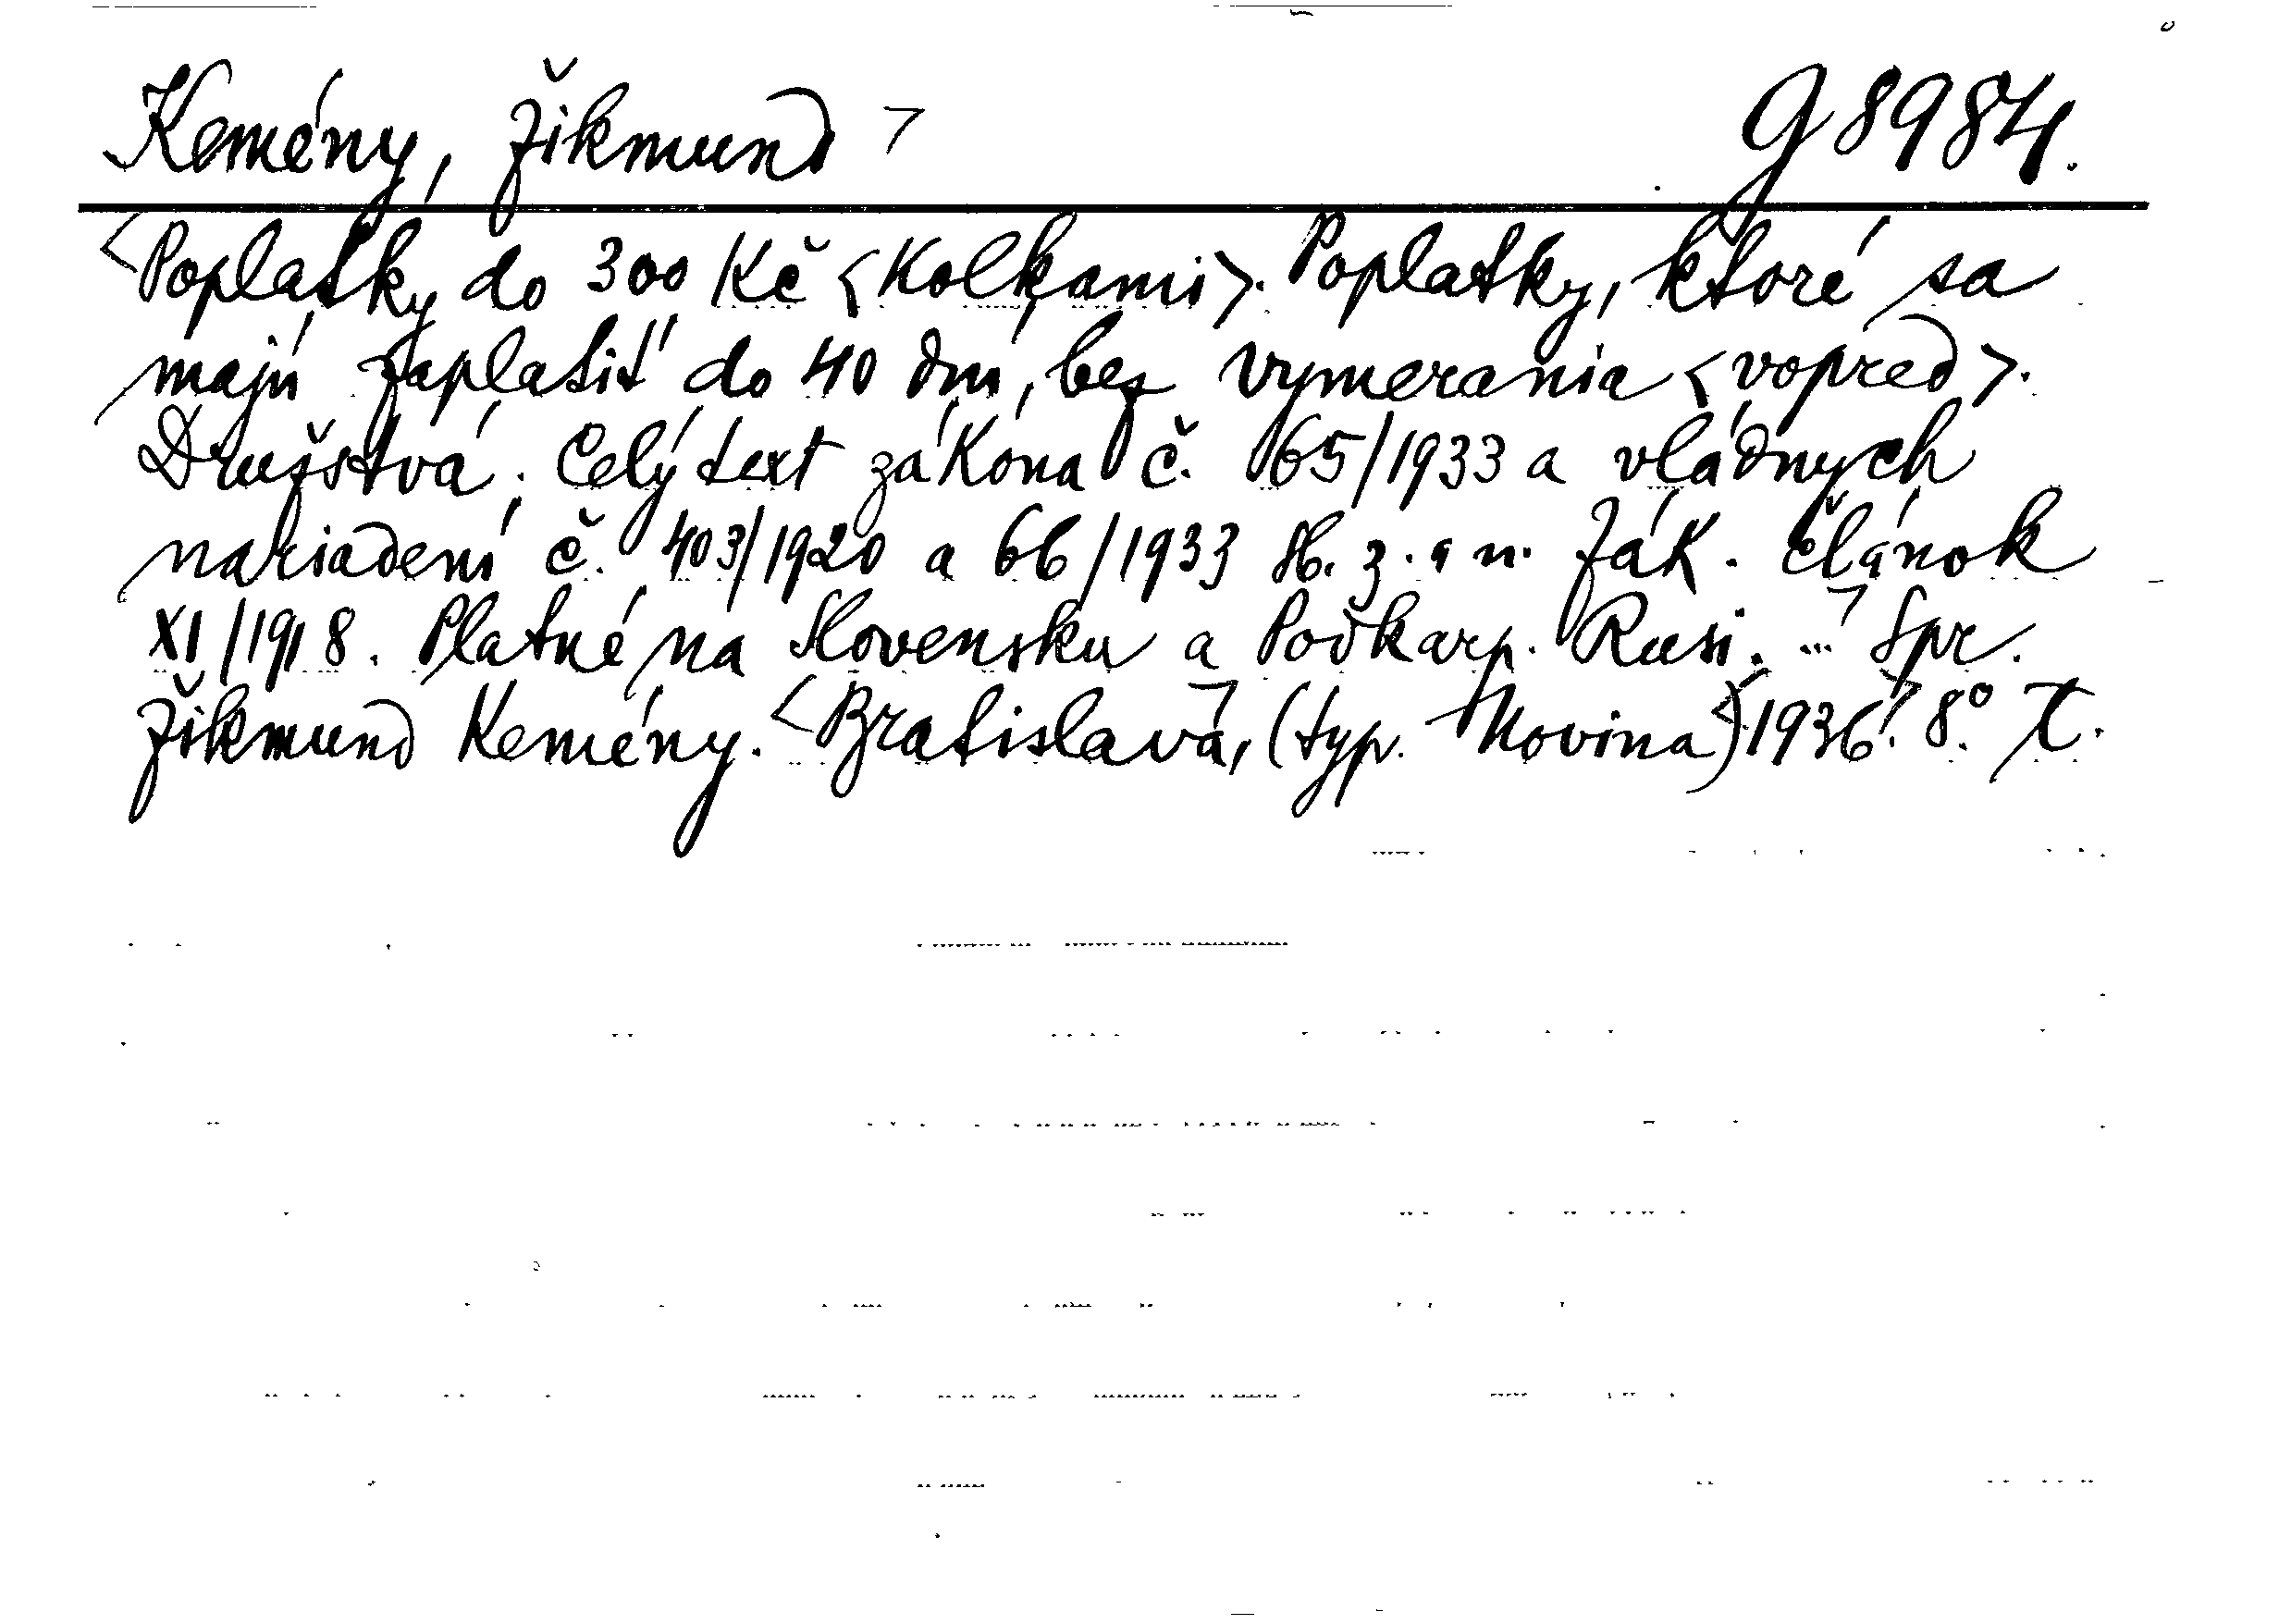 Kemény, Žikmund ¬ G 8984.
<Poplatky do 300 Kč <Kolkami>. Poplatky, ktoré sa
majú zaplatiť do 40 dní, bez vymerania <vopred>.
Družstvá. Celý text zákona č. 65/1933 a vládnych
nariadení č. 403/1920 a 66/1933 Sb. z. a n. Zák. článok
XI/1918. Platné na Slovensku a Podkarp. Rusi. ...¬ Spr.
Žikmund Kemény. <Bratislava¬, (typ. Novina) <1936¬. 8°.